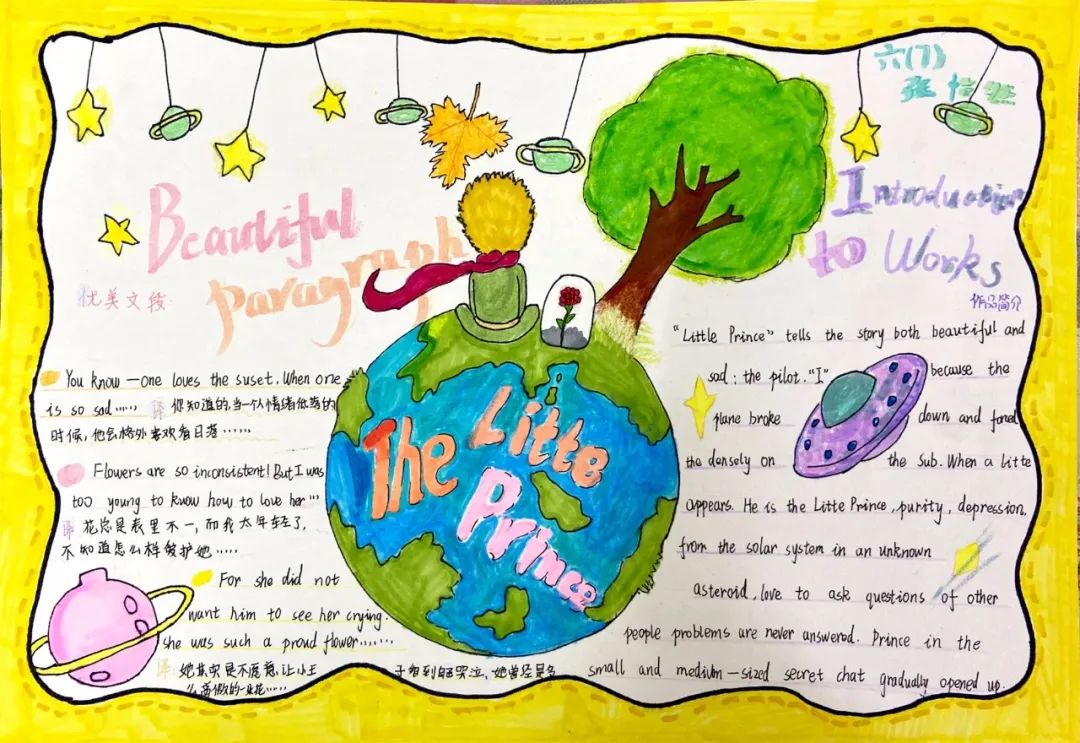 六(7)
张怡
Beautiful
paragraph
优美文段
You know —one loves the suset. When one
is so sad …… 译 你知道的,当一个人情绪低落的
时候,他会格外喜欢看日落 ……
Flowers are so inconsistent! But I was
too young to know how to love her …
译 花总是表里不一,而我太年轻了,
不知道怎么样爱护她 ……
For she did not
want him to see her crying.
she was such a proud flower ……
译: 她其实是不愿意让小王子看到自己哭泣,她曾经是多
么高傲的一朵花 ……
The Litte
Prince
Introduction
to Works
作品简介
"Little Prince" tells the story both beautiful and
sad: the pilot. "I" because the
plane broke down and foned
the densely on the Sub. When a litte
appears. He is the Litte Prince, purity, depression,
from the solar system in an unknown
asteroid, love to ask questions of other
people problems are never answered. Prince in the
small and medium—sized secret chat gradually opened up.